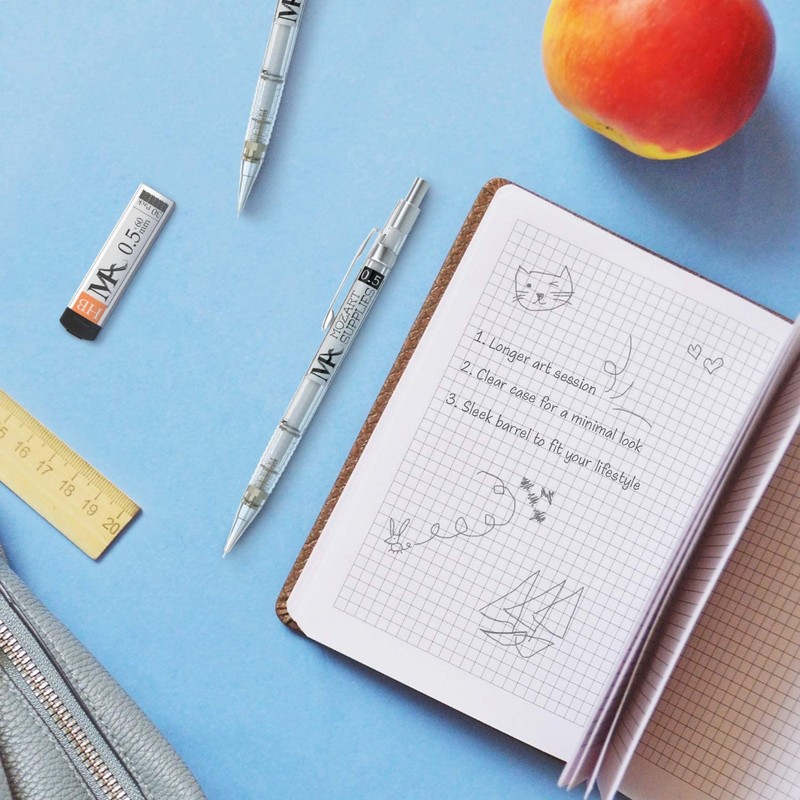 MA
0.5
MOZART
SUPPLIES
MA
HB
MA
0.5
mm
60
1. Longer art session
2. Clear case for a minimal look
3. Sleek barrel to fit your lifestyle
16 17 18 19 20